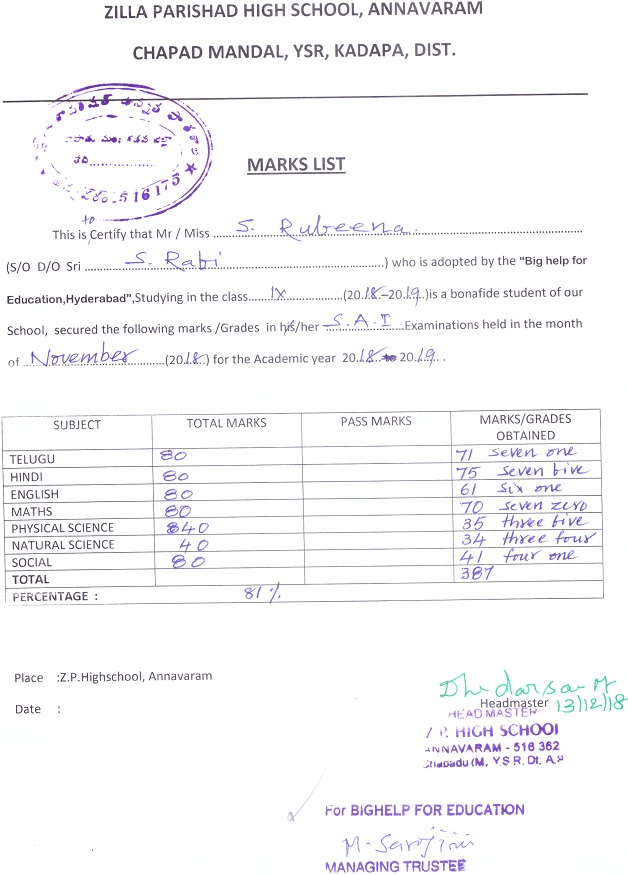 ZILLA PARISHAD HIGH SCHOOL, ANNAVARAM
CHAPAD MANDAL, YSR, KADAPA, DIST.
516175
MARKS LIST
to
This is Certify that Mr / Miss S. Rubeena.
(S/O D/O Sri S. Rabi ) who is adopted by the "Big help for
Education,Hyderabad",Studying in the class IX (2018-2019)is a bonafide student of our
School, secured the following marks /Grades in his/her S.A.I Examinations held in the month
of November (2018) for the Academic year 2018 to 2019.
SUBJECT TOTAL MARKS PASS MARKS MARKS/GRADES OBTAINED
TELUGU 80 71 seven one
HINDI 80 75 seven five
ENGLISH 80 61 six one
MATHS 80 70 seven zero
PHYSICAL SCIENCE 40 35 three five
NATURAL SCIENCE 40 34 three four
SOCIAL 80 41 four one
TOTAL 387
PERCENTAGE : 81 %
Place :Z.P.Highschool, Annavaram
Date :
Headmaster 13/12/18
HEAD MASTER
P. HIGH SCHOOL
ANNAVARAM - 516 362
Chapadu (M, Y.S R. Dt. A.P
For BIGHELP FOR EDUCATION
M. Sarojini
MANAGING TRUSTEE